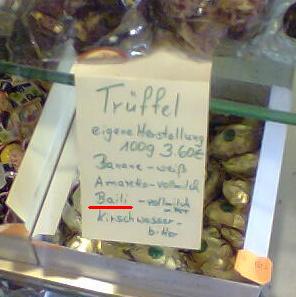 Trüffel
eigene Herstellung
100g 3.60€
Banane - weiß
Amaretto - vollmilch
Baili - vollmilch
Kirschwasser -
bitter